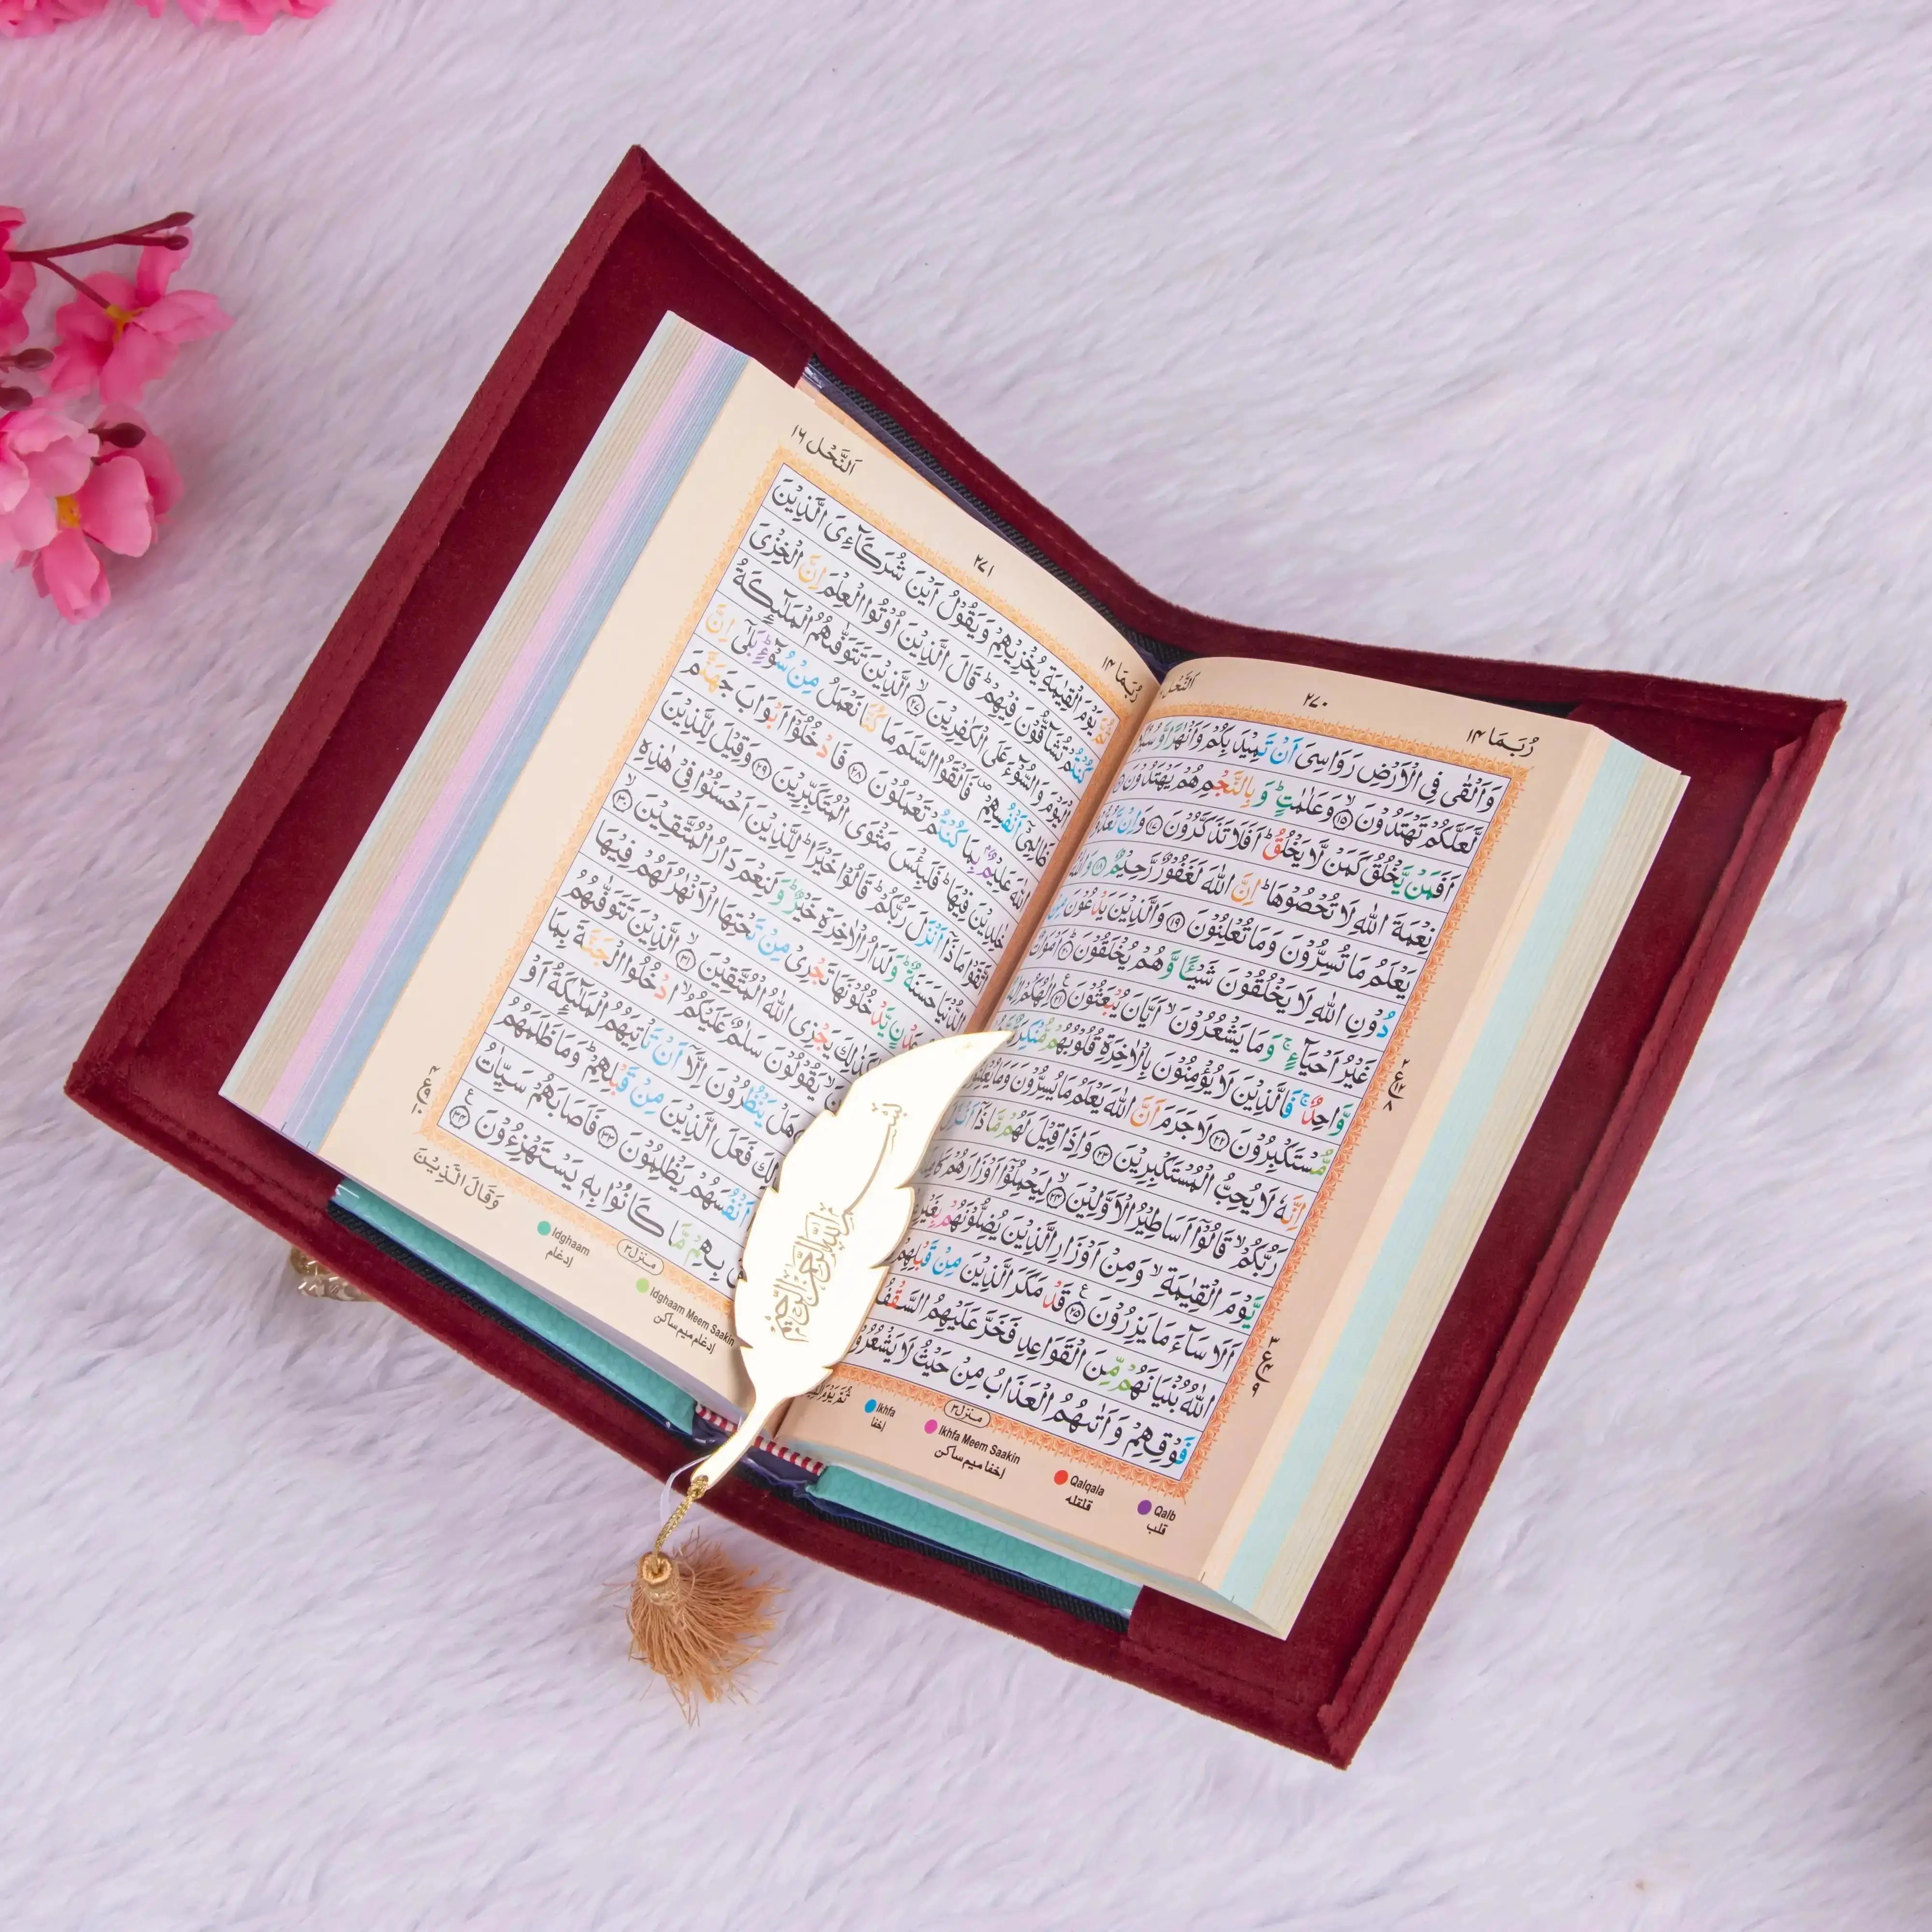 رُبَمَا ١٤
٢٧٠
اَلنَّحۡل
وَاَلۡقٰى فِى الۡاَرۡضِ رَوَاسِىَ اَنۡ تَمِيۡدَ بِكُمۡ وَاَنۡهٰرًا وَّسُبُلًا
لَّعَلَّكُمۡ تَهۡتَدُوۡنَ ۙ‏﴿۱۵﴾ وَعَلٰمٰتٍ‌ؕ وَبِالنَّجۡمِ هُمۡ يَهۡتَدُوۡنَ
اَفَمَنۡ يَّخۡلُقُ كَمَنۡ لَّا يَخۡلُقُ‌ؕ اَفَلَا تَذَكَّرُوۡنَ ‏﴿۱۷﴾ وَاِنۡ تَعُدُّوۡا
نِعۡمَةَ اللّٰهِ لَا تُحۡصُوۡهَاؕ اِنَّ اللّٰهَ لَغَفُوۡرٌ رَّحِيۡمٌ ‏﴿۱۸﴾ وَاللّٰهُ
يَعۡلَمُ مَا تُسِرُّوۡنَ وَمَا تُعۡلِنُوۡنَ ‏﴿۱۹﴾ وَالَّذِيۡنَ يَدۡعُوۡنَ مِنۡ
دُوۡنِ اللّٰهِ لَا يَخۡلُقُوۡنَ شَيۡـًٔا وَّهُمۡ يُخۡلَقُوۡنَؕ ‏﴿۲۰﴾ اَمۡوَاتٌ
غَيۡرُ اَحۡيَآءٍ‌ۚ وَمَا يَشۡعُرُوۡنَۙ اَيَّانَ يُبۡعَثُوۡنَ ‏﴿۲۱﴾ اِلٰهُكُمۡ اِلٰهٌ
وَّاحِدٌ‌ۚ فَالَّذِيۡنَ لَا يُؤۡمِنُوۡنَ بِالۡاٰخِرَةِ قُلُوۡبُهُمۡ مُّنۡكِرَةٌ
مُّسۡتَكۡبِرُوۡنَ ‏﴿۲۲﴾ لَا جَرَمَ اَنَّ اللّٰهَ يَعۡلَمُ مَا يُسِرُّوۡنَ وَمَا يُعۡلِنُوۡنَ
اِنَّهٗ لَا يُحِبُّ الۡمُسۡتَكۡبِرِيۡنَ ‏﴿۲۳﴾ وَاِذَا قِيۡلَ لَهُمۡ مَّاذَاۤ اَنۡزَلَ
رَبُّكُمۡ‌ۙ قَالُوۡۤا اَسَاطِيۡرُ الۡاَوَّلِيۡنَۙ ‏﴿۲۴﴾ لِيَحۡمِلُوۡۤا اَوۡزَارَهُمۡ كَامِلَةً
يَّوۡمَ الۡقِيٰمَةِ‌ۙ وَمِنۡ اَوۡزَارِ الَّذِيۡنَ يُضِلُّوۡنَهُمۡ بِغَيۡرِ
اَلَا سَآءَ مَا يَزِرُوۡنَ ‏﴿۲۵﴾ قَدۡ مَكَرَ الَّذِيۡنَ مِنۡ قَبۡلِهِمۡ
اللّٰهُ بُنۡيَانَهُمۡ مِّنَ الۡقَوَاعِدِ فَخَرَّ عَلَيۡهِمُ السَّقۡفُ
فَوۡقِهِمۡ وَاَتٰٮهُمُ الۡعَذَابُ مِنۡ حَيۡثُ لَا يَشۡعُرُوۡنَ
ثُمَّ يَوۡمَ
منزل٣
Ikhfa
إخفا
Ikhfa Meem Saakin
إخفا ميم ساكن
Qalqala
قلقله
Qalb
قلب
رُبَمَا ١٤
٢٧١
اَلنَّحۡل ١٦
يَوۡمَ الۡقِيٰمَةِ يُخۡزِيۡهِمۡ وَيَقُوۡلُ اَيۡنَ شُرَكَآءِىَ الَّذِيۡنَ
كُنۡتُمۡ تُشَآقُّوۡنَ فِيۡهِمۡ‌ؕ قَالَ الَّذِيۡنَ اُوۡتُوا الۡعِلۡمَ اِنَّ الۡخِزۡىَ
الۡيَوۡمَ وَالسُّوۡۤءَ عَلَى الۡكٰفِرِيۡنَۙ ‏﴿۲۷﴾ الَّذِيۡنَ تَتَوَفّٰٮهُمُ الۡمَلٰۤٮِٕكَةُ
ظَالِمِىۡۤ اَنۡفُسِهِمۡ‌ فَاَلۡقَوُا السَّلَمَ مَا كُنَّا نَعۡمَلُ مِنۡ سُوۡٓءٍؕ بَلٰٓى اِنَّ
اللّٰهَ عَلِيۡمٌۢ بِمَا كُنۡتُمۡ تَعۡمَلُوۡنَ ‏﴿۲۸﴾ فَادۡخُلُوۡۤا اَبۡوَابَ جَهَنَّمَ
خٰلِدِيۡنَ فِيۡهَا‌ؕ فَلَبِئۡسَ مَثۡوَى الۡمُتَكَبِّرِيۡنَ ‏﴿۲۹﴾ وَقِيۡلَ لِلَّذِيۡنَ
اتَّقَوۡا مَاذَاۤ اَنۡزَلَ رَبُّكُمۡ‌ؕ قَالُوۡا خَيۡرًاؕ لِلَّذِيۡنَ اَحۡسَنُوۡا فِىۡ هٰذِهِ
الدُّنۡيَا حَسَنَةٌ‌ؕ وَلَدَارُ الۡاٰخِرَةِ خَيۡرٌ‌ؕ وَلَنِعۡمَ دَارُ الۡمُتَّقِيۡنَۙ ‏﴿۳۰﴾
عَدۡنٍ يَّدۡخُلُوۡنَهَا تَجۡرِىۡ مِنۡ تَحۡتِهَا الۡاَنۡهٰرُ‌ لَهُمۡ فِيۡهَا
كَذٰلِكَ يَجۡزِى اللّٰهُ الۡمُتَّقِيۡنَۙ ‏﴿۳۱﴾ الَّذِيۡنَ تَتَوَفّٰٮهُمُ
يَقُوۡلُوۡنَ سَلٰمٌ عَلَيۡكُمُۙ ادۡخُلُوا الۡجَـنَّةَ بِمَا
هَلۡ يَنۡظُرُوۡنَ اِلَّاۤ اَنۡ تَاۡتِيَهُمُ الۡمَلٰۤٮِٕكَةُ اَوۡ
فَعَلَ الَّذِيۡنَ مِنۡ قَبۡلِهِمۡ‌ؕ وَمَا ظَلَمَهُمُ
اَنۡفُسَهُمۡ يَظۡلِمُوۡنَ ‏﴿۳۳﴾ فَاَصَابَهُمۡ سَيِّاٰتُ
بِهِمۡ مَّا كَانُوۡا بِهٖ يَسۡتَهۡزِءُوۡنَ ‏﴿۳۴﴾
وَقَالَ الَّذِيۡنَ
منزل٣
Idghaam
إدغام
Idghaam Meem Saakin
إدغام ميم ساكن
بسم الله الرحمن الرحيم